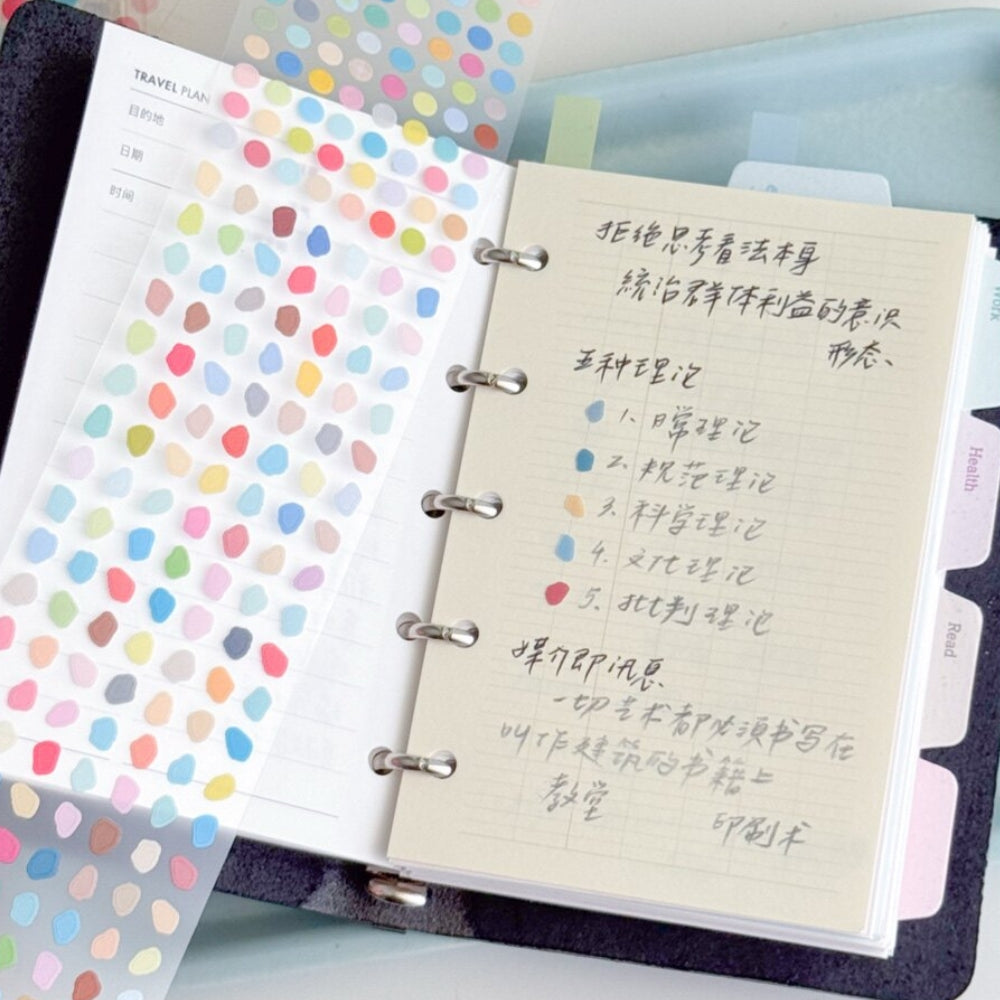 TRAVEL PLAN
目的地
日期
时间
拒绝思考看法本身
統治群体利益的意识
形态、
五种理论
1、日常理论
2、规范理论
3、科学理论
4、文化理论
5、批判理论
媒介即讯息
一切艺术都必须书写在
叫作建筑的书籍上
教堂
印刷术
Work
Health
Read